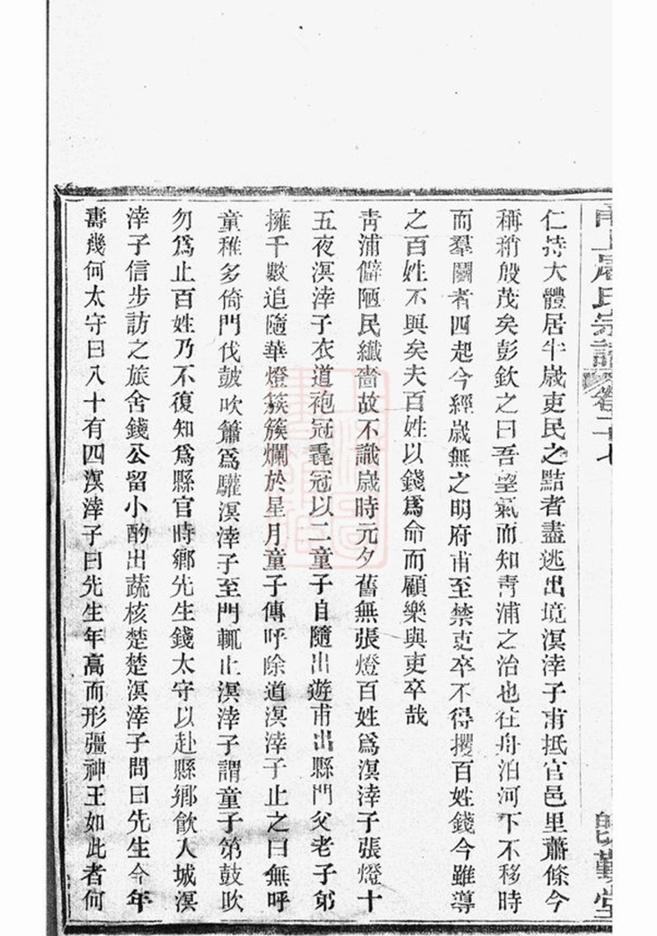 仁持大體居半歲吏民之黠者盡逃出境溟涬子甫抵官邑里蕭條今
稱稍殷茂矣彭欽之曰吾望氣而知靑浦之治也在舟泊河下不移時
而羣鬭者四起今經歲無之明府甫至禁吏卒不得攫百姓錢今雖導
之百姓不與矣夫百姓以錢爲命而顧樂與吏卒哉
靑浦僻陋民纖嗇故不識歲時元夕舊無張燈百姓爲溟涬子張燈十
五夜溟涬子衣道袍冠毳冠以二童子自隨出遊甫出縣門父老子弟
擁千數追隨華燈簇簇爛於星月童子傳呼除道溟涬子止之曰無呼
童稚多倚門伐皷吹簫爲驩溟涬子至門輒止溟涬子謂童子第鼓吹
勿爲止百姓乃不復知爲縣官時鄉先生錢太守以赴縣鄉飮入城溟
涬子信步訪之旅舍錢公留小酌出蔬核楚楚溟涬子問曰先生今年
壽幾何太守曰八十有四溟涬子曰先生年高而形彊神王如此者何
氏宗譜
卷二十七
勤堂